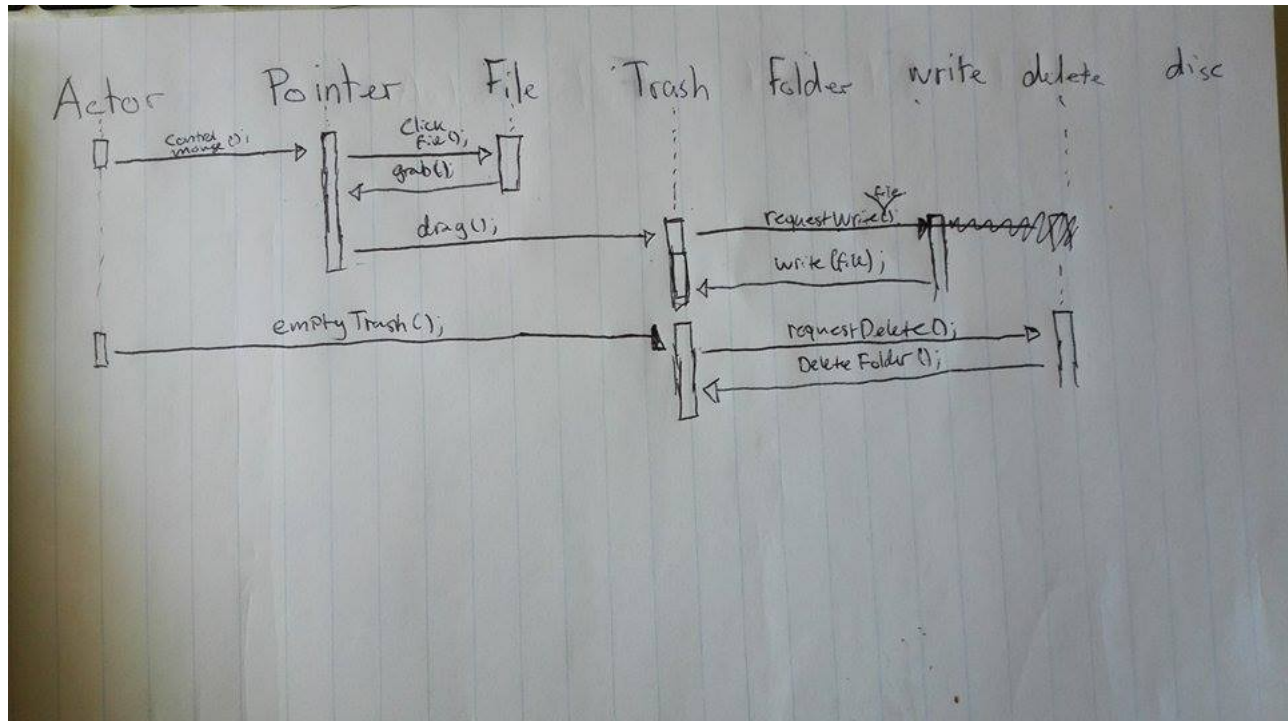 Actor Pointer File Trash Folder write delete disc
Control
mouse();
Click
file();
grab();
drag();
file
requestWrite();
write(file);
emptyTrash();
requestDelete();
DeleteFolder();